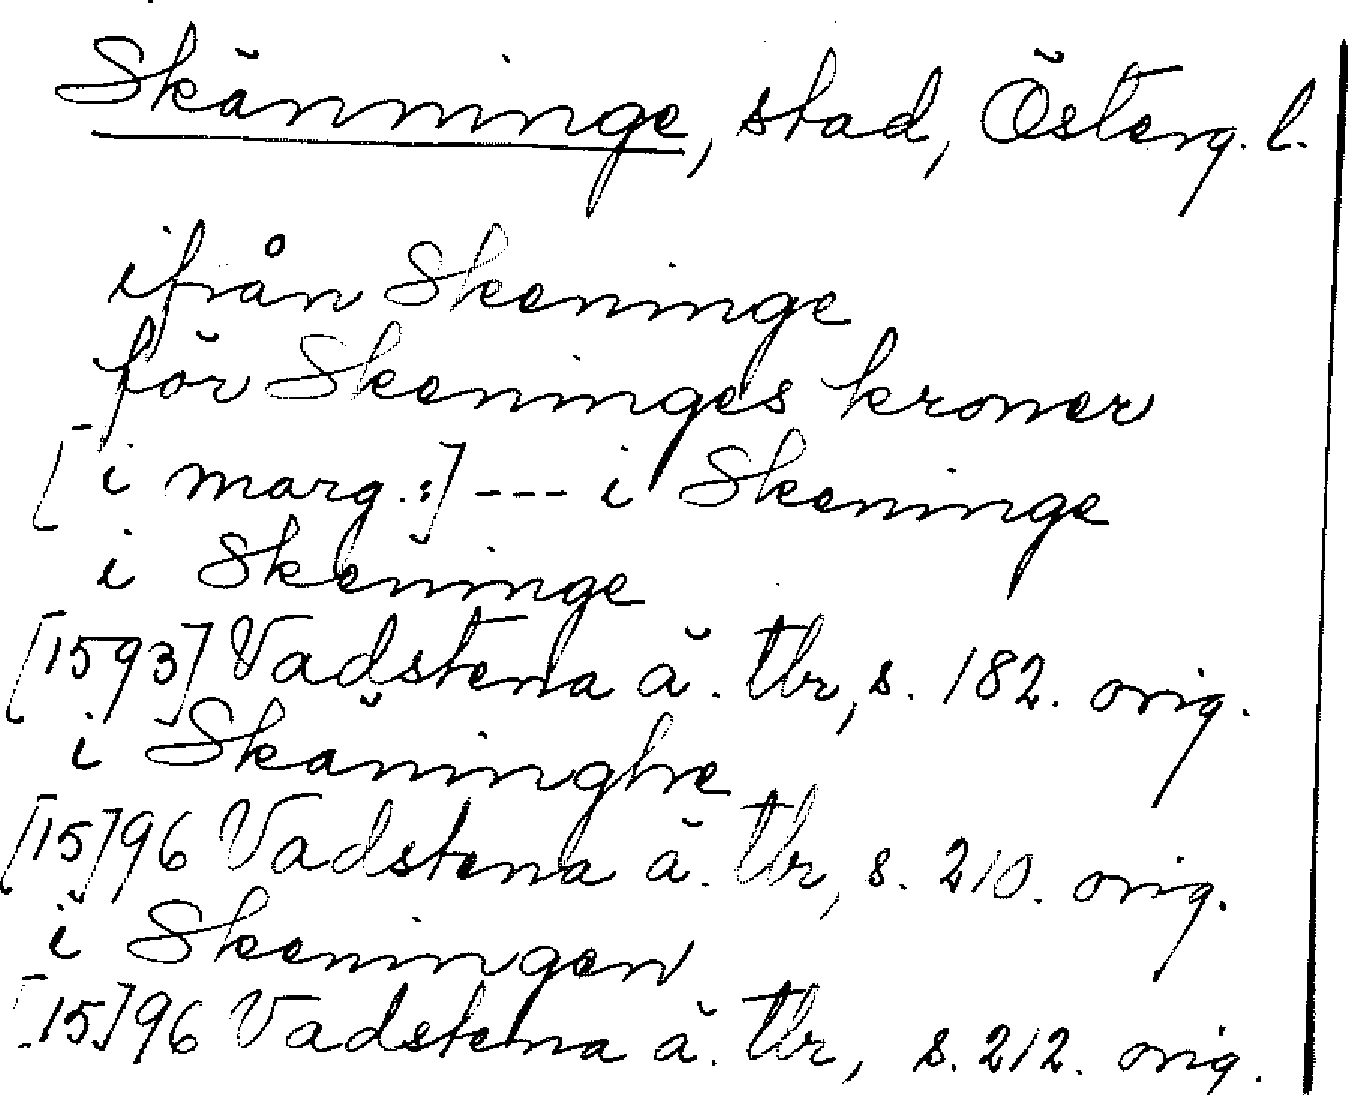 Skänninge, stad, Österg. l.
ifrån Skeninge
för Skeninges kroner
[i marg.:] --- i Skeninge
i Skeninge
[1593] Vadstena ä. tbr, s. 182. orig.
i Skäninghe
[15]96 Vadstena ä. tbr, s. 210. orig.
i Skeningen
[15]96 Vadstena ä. tbr, s. 212. orig.